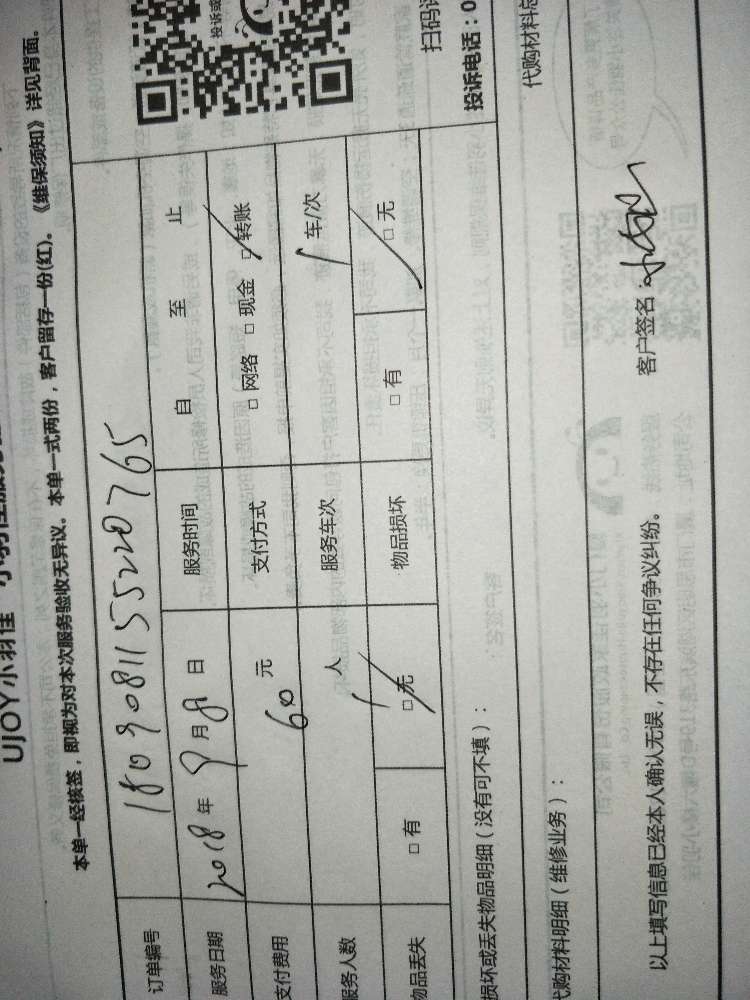 UJOY小羽佳
本单一经核签，即视为对本次服务验收无异议。本单一式两份，客户留存一份(红)。《维保须知》详见背面。
订单编号 1809081155220765
服务日期 2018 年 9 月 8 日 服务时间 自 至 止
支付费用 60 元 支付方式 □ 网络 □ 现金 □ 转账
服务人数 1 人 服务车次 1 车/次
物品丢失 □ 有 □ 无 物品损坏 □ 有 □ 无
投诉或
扫码
投诉电话：0
损坏或丢失物品明细（没有可不填）：
代购材料总
代购材料明细（维修业务）：
以上填写信息已经本人确认无误，不存在任何争议纠纷。
客户签名：